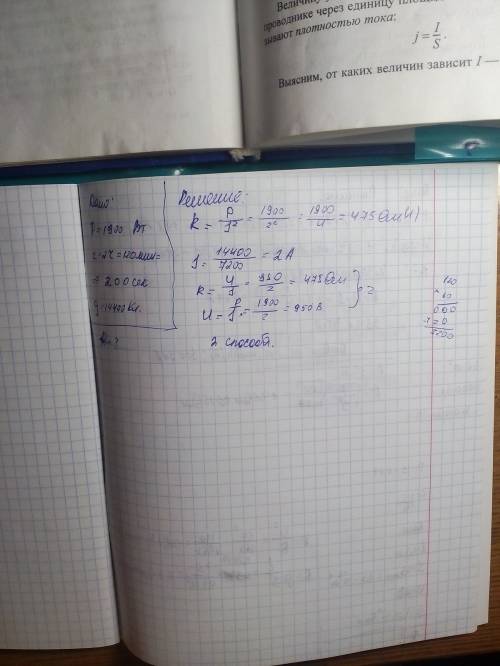 Величину
проводнике через единицу площад
зывают плотностью тока:
j = I/S.
Выясним, от каких величин зависит I —
Дано:
P=1900 Вт
=2ч=120мин=
=7200 сек
q=14400 Кл.
R-?
Решение:
R = P/I² = 1900/2² = 1900/4 = 475 Ом 1)
I = 14400/7200 = 2 А
R = U/I = 950/2 = 475 Ом } 2
U = P/I = 1900/2 = 950 В
2 способа.
120
60
000
720
7200